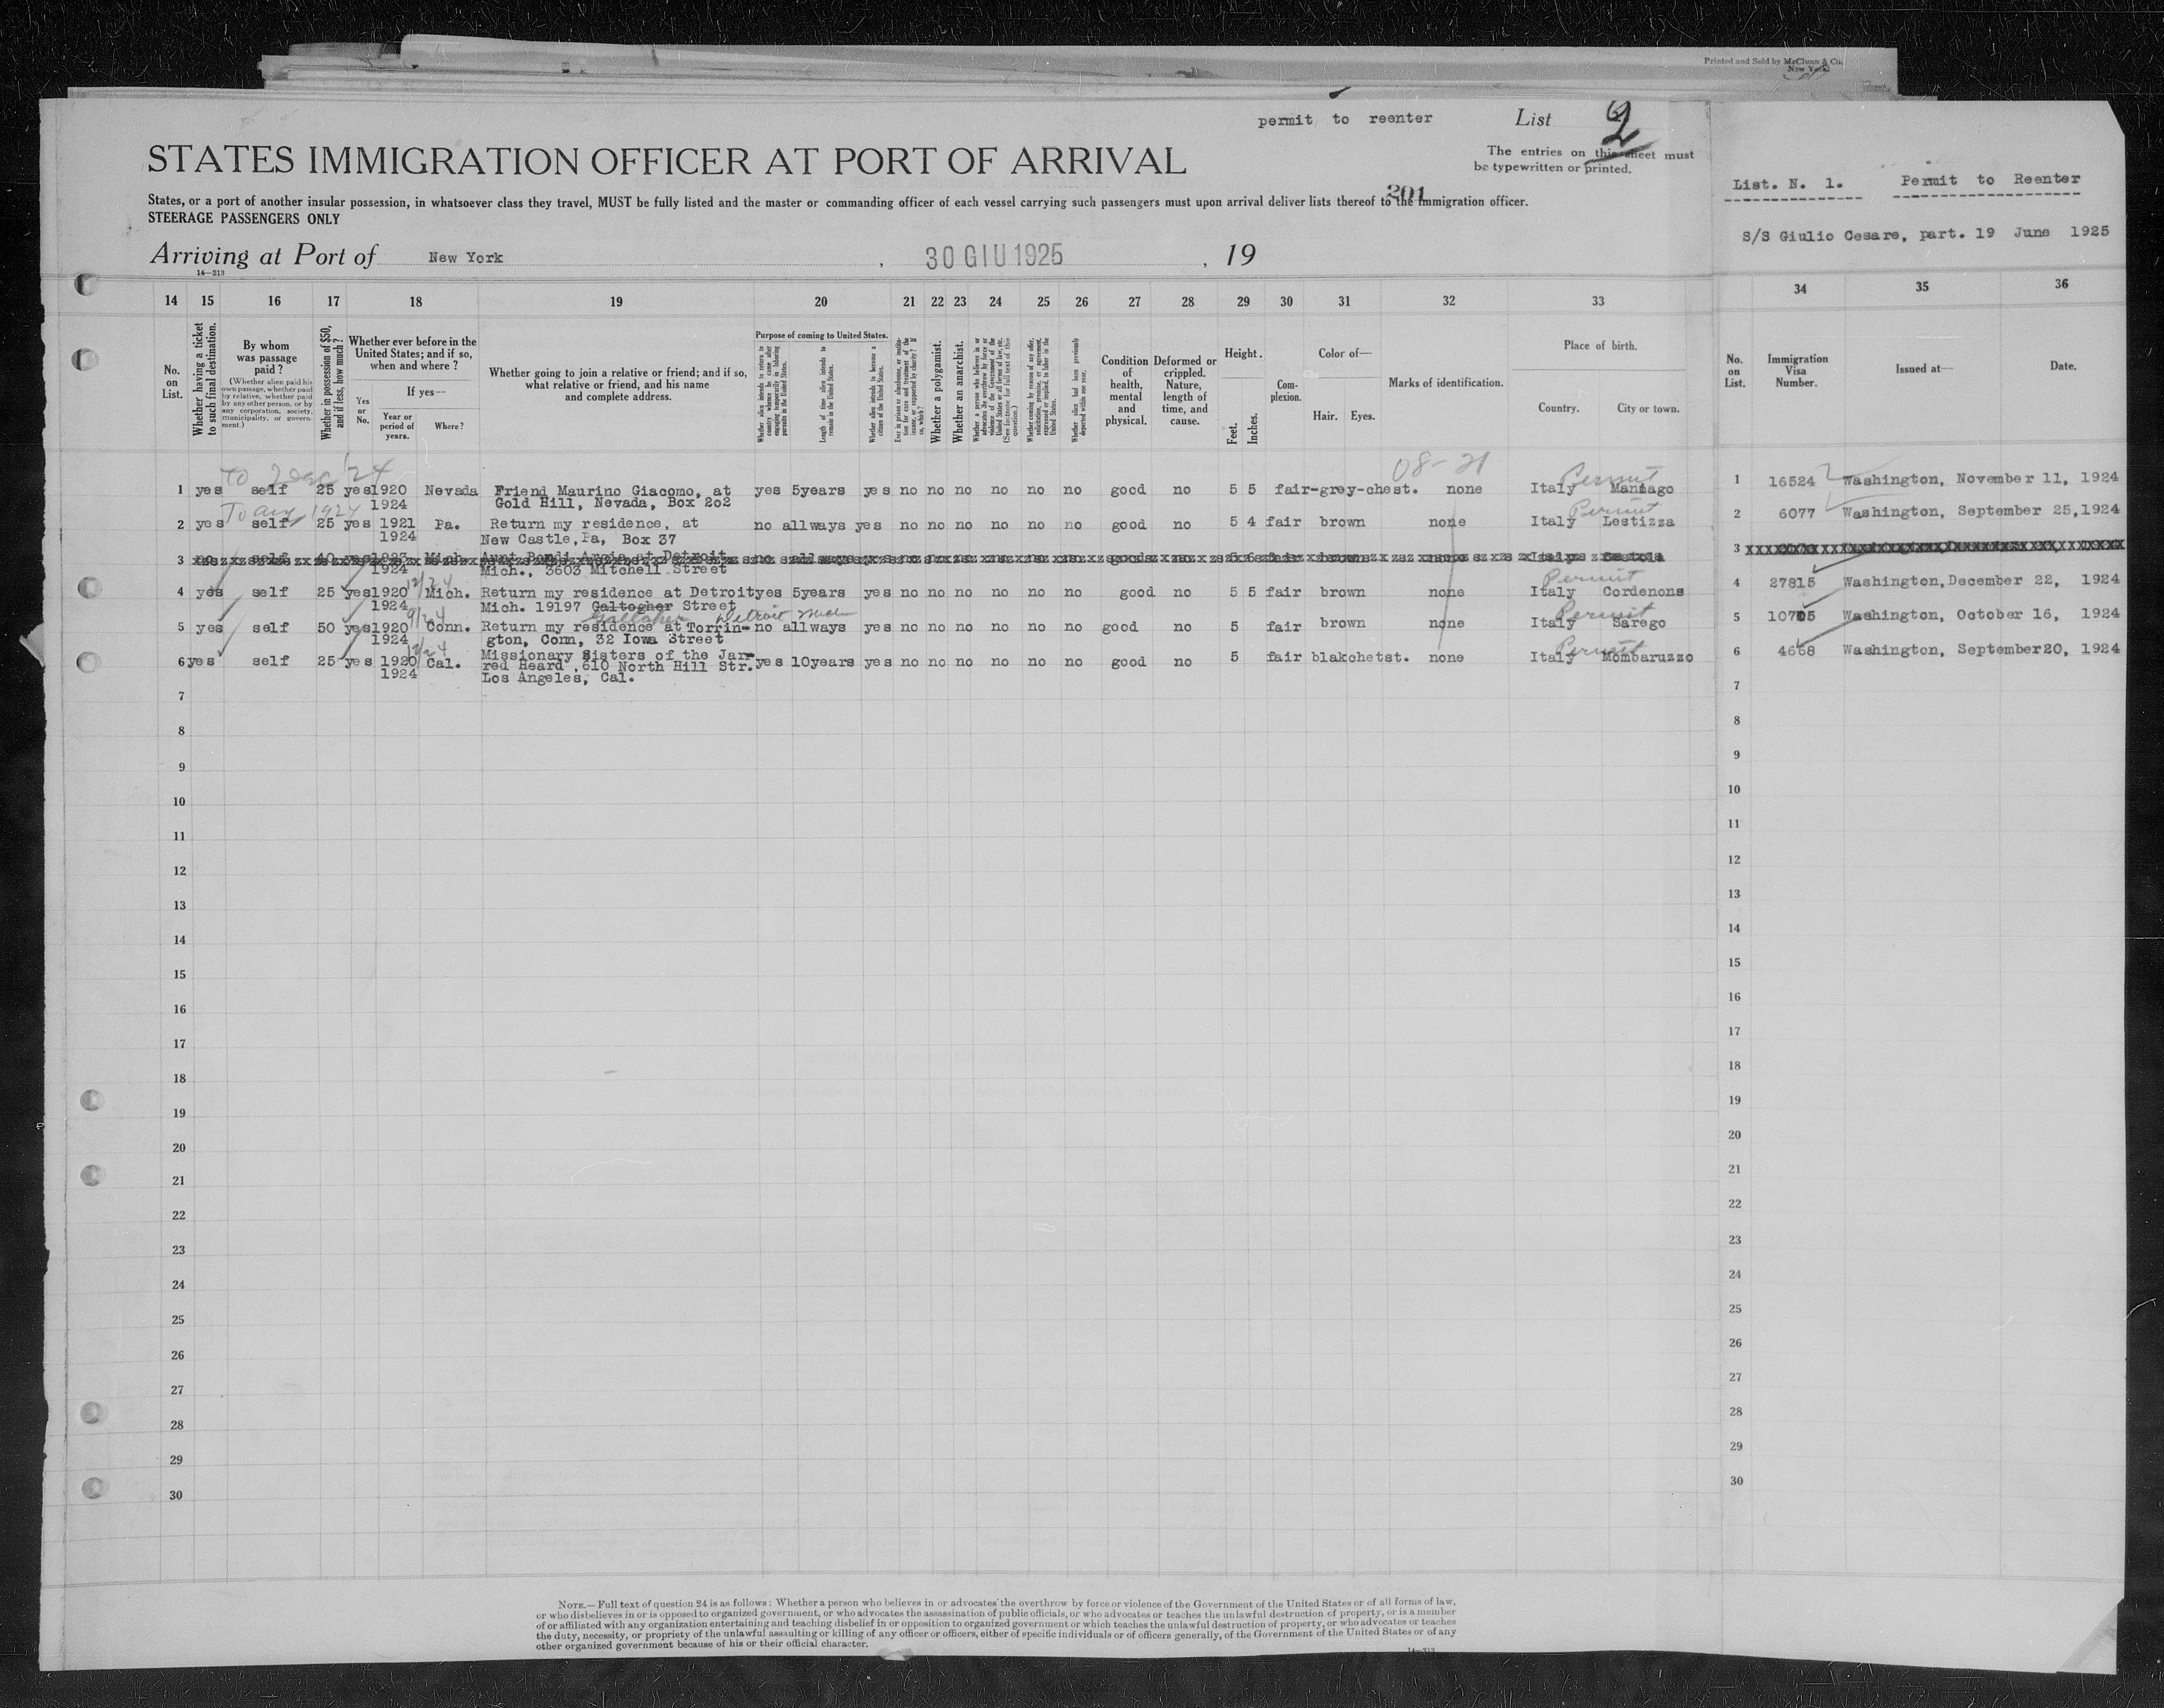 Printed and Sold by McClunn & Co.
New York
permit to reenter
List 2
The entries on this sheet must
be typewritten or printed.
STATES IMMIGRATION OFFICER AT PORT OF ARRIVAL
201
States, or a port of another insular possession, in whatsoever class they travel, MUST be fully listed and the master or commanding officer of each vessel carrying such passengers must upon arrival deliver lists thereof to the immigration officer.
STEERAGE PASSENGERS ONLY
Arriving at Port of New York, 30 GIU 1925, 19
14—213
List. N. 1. Permit to Reenter
S/S Giulio Cesare, part. 19 June 1925
14 15 16 17 18 19 20 21 22 23 24 25 26 27 28 29 30 31 32 33 34 35 36
No. on List.
Whether having a ticket to such final destination.
By whom was passage paid?
(Whether alien paid his own passage, whether paid by relative, whether paid by any other person, or by any corporation, society, municipality, or government.)
Whether in possession of $50, and if less, how much?
Whether ever before in the United States; and if so, when and where?
Yes or No.
If yes—
Year or period of years.
Where?
Whether going to join a relative or friend; and if so, what relative or friend, and his name and complete address.
Purpose of coming to United States.
Whether alien intends to return to country whence he came after engaging temporarily in laboring pursuits in the United States.
Length of time alien intends to remain in the United States.
Whether alien intends to become a citizen of the United States.
Ever in prison or almshouse, or institution for care and treatment of the insane, or supported by charity? If so, which?
Whether a polygamist.
Whether an anarchist.
Whether a person who believes in or advocates the overthrow by force or violence of the Government of the United States or all forms of law, etc. (See footnote for full text of this question.)
Whether coming by reason of any offer, solicitation, promise, or agreement, expressed or implied, to labor in the United States.
Whether alien had been previously deported within one year.
Condition of health, mental and physical.
Deformed or crippled. Nature, length of time, and cause.
Height.
Feet. Inches.
Complexion.
Color of—
Hair. Eyes.
Marks of identification.
Place of birth.
Country. City or town.
No. on List.
Immigration Visa Number.
Issued at—
Date.
To Dec/24 08-21 Permit
1 yes self 25 yes 1920 Nevada Friend Maurino Giacomo, at yes 5years yes no no no no no no good no 5 5 fair-grey-chest. none Italy Maniago 1 16524 Washington, November 11, 1924
1924 Gold Hill, Nevada, Box 202
To Aug 1924 Permit
2 yes self 25 yes 1921 Pa. Return my residence, at no allways yes no no no no no no good no 5 4 fair brown none Italy Lestizza 2 6077 Washington, September 25,1924
1924 New Castle,Pa, Box 37
3 no self 40 yes1923 Mich. Aunt Bondi Argia at Detroit 3
1924 Mich., 3603 Mitchell Street
12/24 Permit
4 yes self 25 yes1920 Mich. Return my residence at Detroit yes 5years yes no no no no no no good no 5 5 fair brown none Italy Cordenons 4 27815 Washington,December 22, 1924
1924 Mich. 19197 Galtogher Street
9/24 Gallagher Detroit Mich Permit
5 yes self 50 yes1920 Conn. Return my residence at Torrin- no allways yes no no no no no no good no 5 fair brown none Italy Sarego 5 10705 Washington, October 16, 1924
1924 gton, Conn, 32 Iowa Street
12/24 Permit
6 yes self 25 yes 1920 Cal. Missionary Sisters of the Jar- yes 10years yes no no no no no no good no 5 fair blakchetst. none Italy Mombaruzzo 6 4668 Washington, September20, 1924
1924 red Heard ,610 North Hill Str.
Los Angeles, Cal.
7 7
8 8
9 9
10 10
11 11
12 12
13 13
14 14
15 15
16 16
17 17
18 18
19 19
20 20
21 21
22 22
23 23
24 24
25 25
26 26
27 27
28 28
29 29
30 30
NOTE.—Full text of question 24 is as follows: Whether a person who believes in or advocates the overthrow by force or violence of the Government of the United States or of all forms of law,
or who disbelieves in or is opposed to organized government, or who advocates the assassination of public officials, or who advocates or teaches the unlawful destruction of property, or is a member
of or affiliated with any organization entertaining and teaching disbelief in or opposition to organized government or which teaches the unlawful destruction of property, or who advocates or teaches
the duty, necessity, or propriety of the unlawful assaulting or killing of any officer or officers, either of specific individuals or of officers generally, of the Government of the United States or of any
other organized government because of his or their official character.
14—213